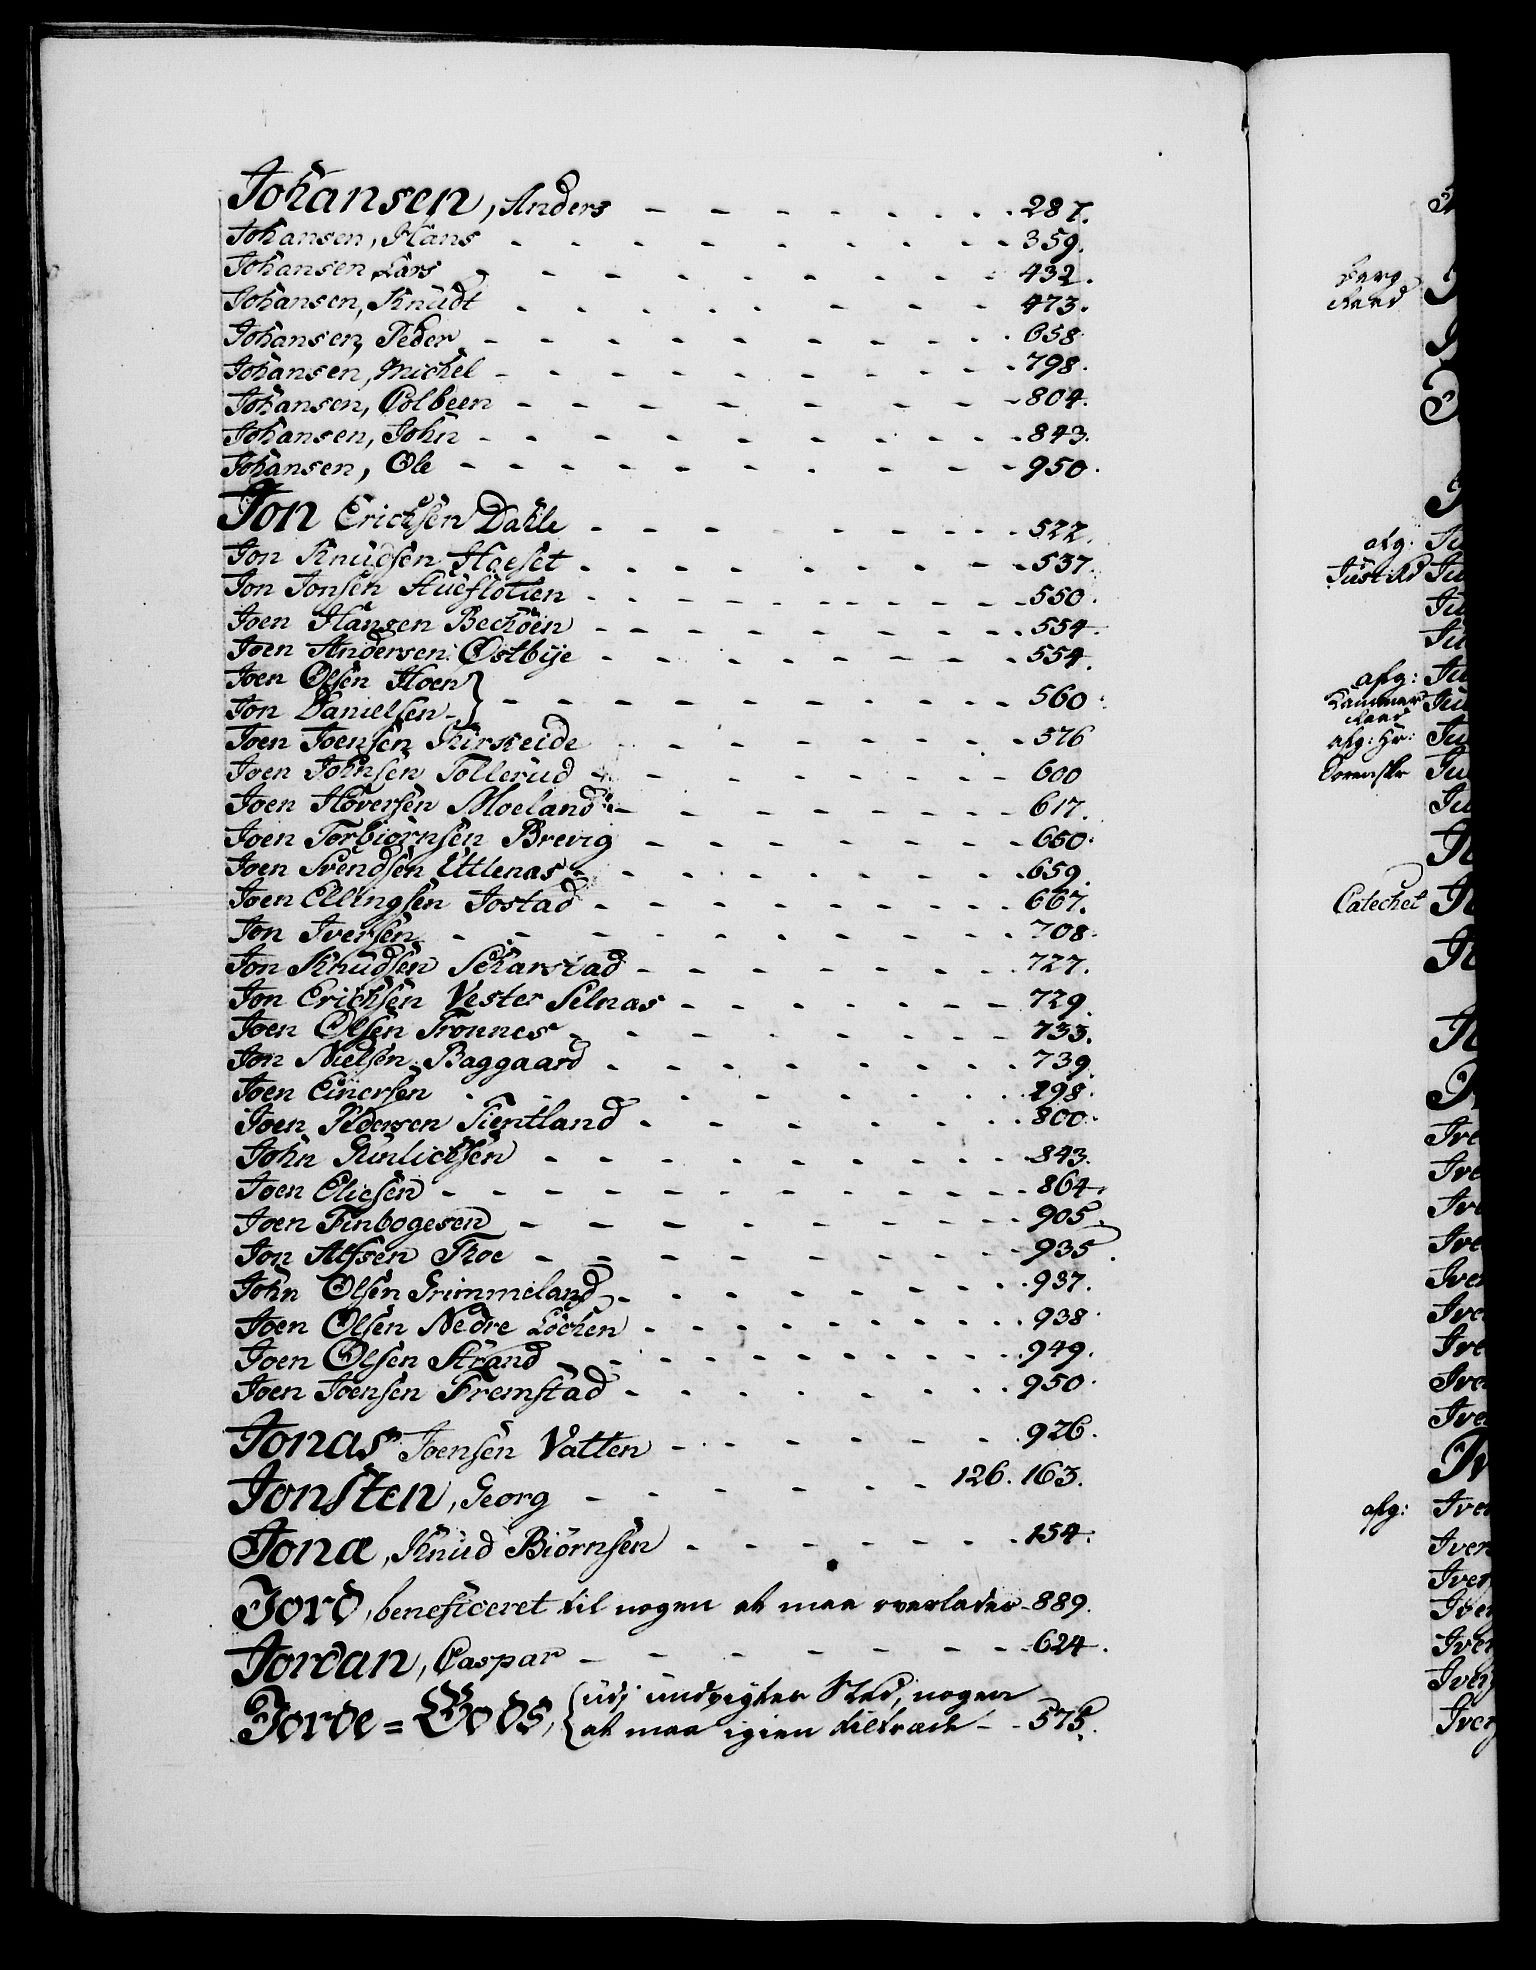 Johansen, Anders - - - - - - - - 287.
Johansen, Hans - - - - - - - - - 359.
Johansen Lars - - - - - - - - - 432.
Johansen, Knudt - - - - - - - - 473.
Johansen, Peder - - - - - - - - - 658.
Johansen, Michel - - - - - - - - - 798.
Johansen, Colbeen - - - - - - - - 804.
Johansen, John - - - - - - - - - 843.
Johansen, Ole - - - - - - - - - 950.
Jon Erichsen Dahle - - - - - - - - 522.
Jon Knudsen Hoeset - - - - - - - - 537.
Jon Jonsen Stuefloten - - - - - - - - 550.
Joen Hansen Bechöen - - - - - - - - 554.
Joen Andersen Østbye - - - - - - - - 554.
Joen Olsen Hoen
Jon Danielsen } - - - - - - - - - 560.
Joen Joensen Kirkeide - - - - - - - - 576
Joen Johnsen Tollerud - - - - - - - - 600
Joen Hoversen Moeland - - - - - - - 617.
Joen Torbiörnsen Brevig - - - - - - - 650.
Joen Svendsen Utlenas - - - - - - - - 659.
Joen Ellingsen Jostad - - - - - - - - 667.
Jon Iversen - - - - - - - - - 708.
Jon Knudsen Scharstad - - - - - - - 727.
Jon Erichsen Vester Selnas - - - - - - 729.
Joen Olsen Tronnes - - - - - - - - 733.
Jon Nielsen Baggaard - - - - - - - - 739.
Joen Einersen - - - - - - - - - 798.
Joen Pedersen Tientland - - - - - - - 800.
John Gunlichsen - - - - - - - - 843.
Joen Eliesen - - - - - - - - - 864.
Joen Finbogesen - - - - - - - - 905.
Jon Alfsen Thoe - - - - - - - - 935.
John Olsen Grimmeland - - - - - - - - 937.
Joen Olsen Nedre Löchen - - - - - - - - 938.
Joen Olsen Strand - - - - - - - - 949.
Joen Joensen Fremstad - - - - - - - - 950.
Jonas Joensen Vatten - - - - - - - 926.
Jonsten, Georg - - - - - - 126. 163.
Jonæ, Knud Biörnsen - - - - - - - 154.
Jord, beneficeret til nogen at maa overlades - 889.
Jordan, Caspar - - - - - - - - 624.
Jorde = Gods, { udj Sted, nogen
at maa igien - - 575.
afg:
Just Rd
afg:
Kammer
Raad
afg: Hr:
Catechet
afg: